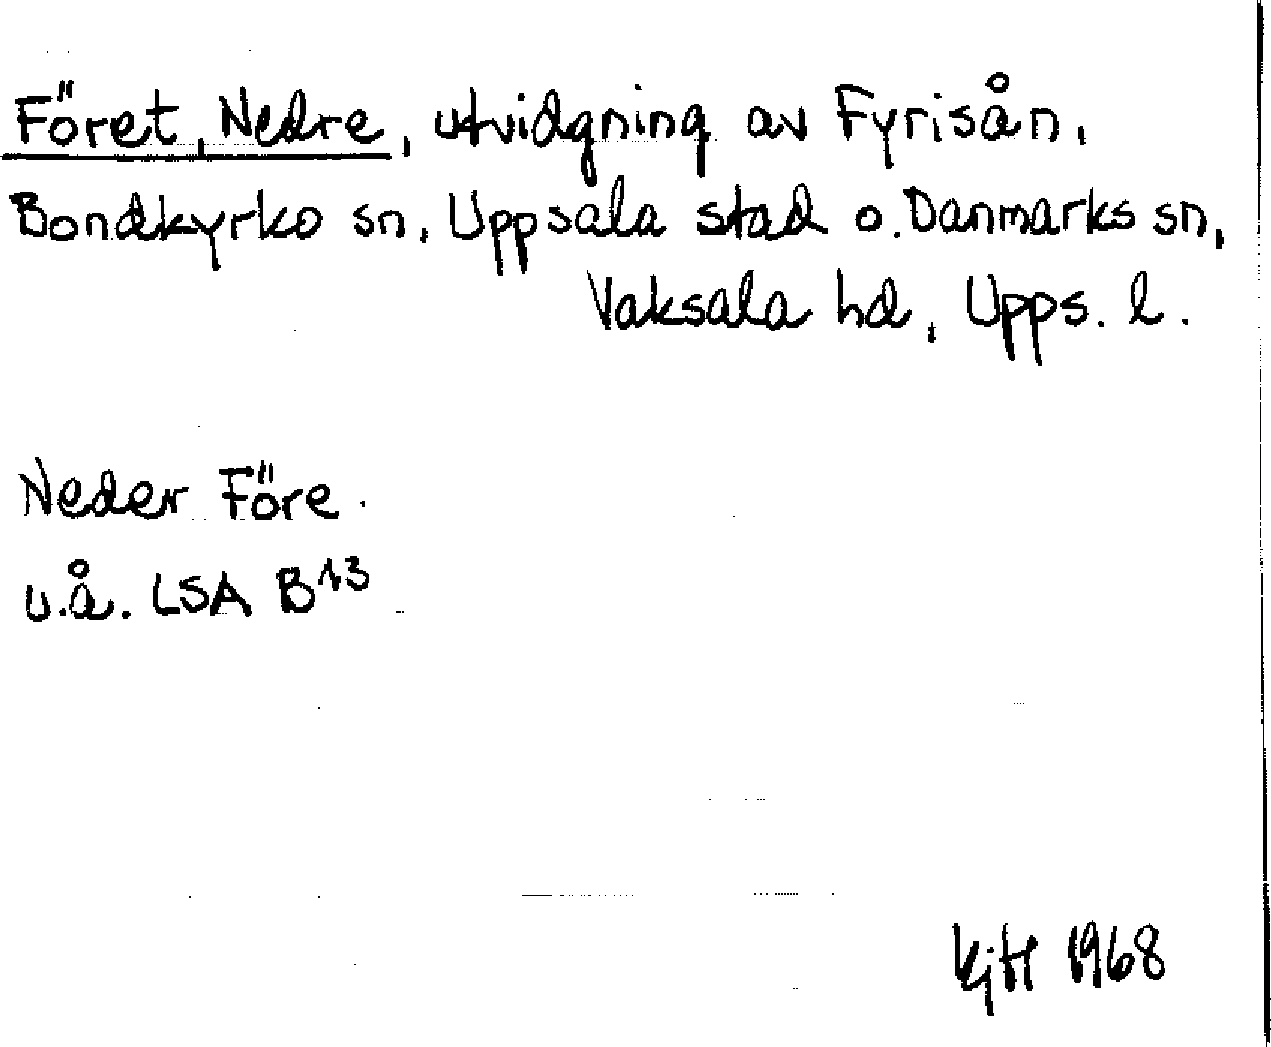 Föret, Nedre, utvidgning av Fyrisån,
Bondkyrko sn, Uppsala stad o. Danmarks sn,
Vaksala hd, Upps. l.
Neder Före.
u.å. LSA B13
1968